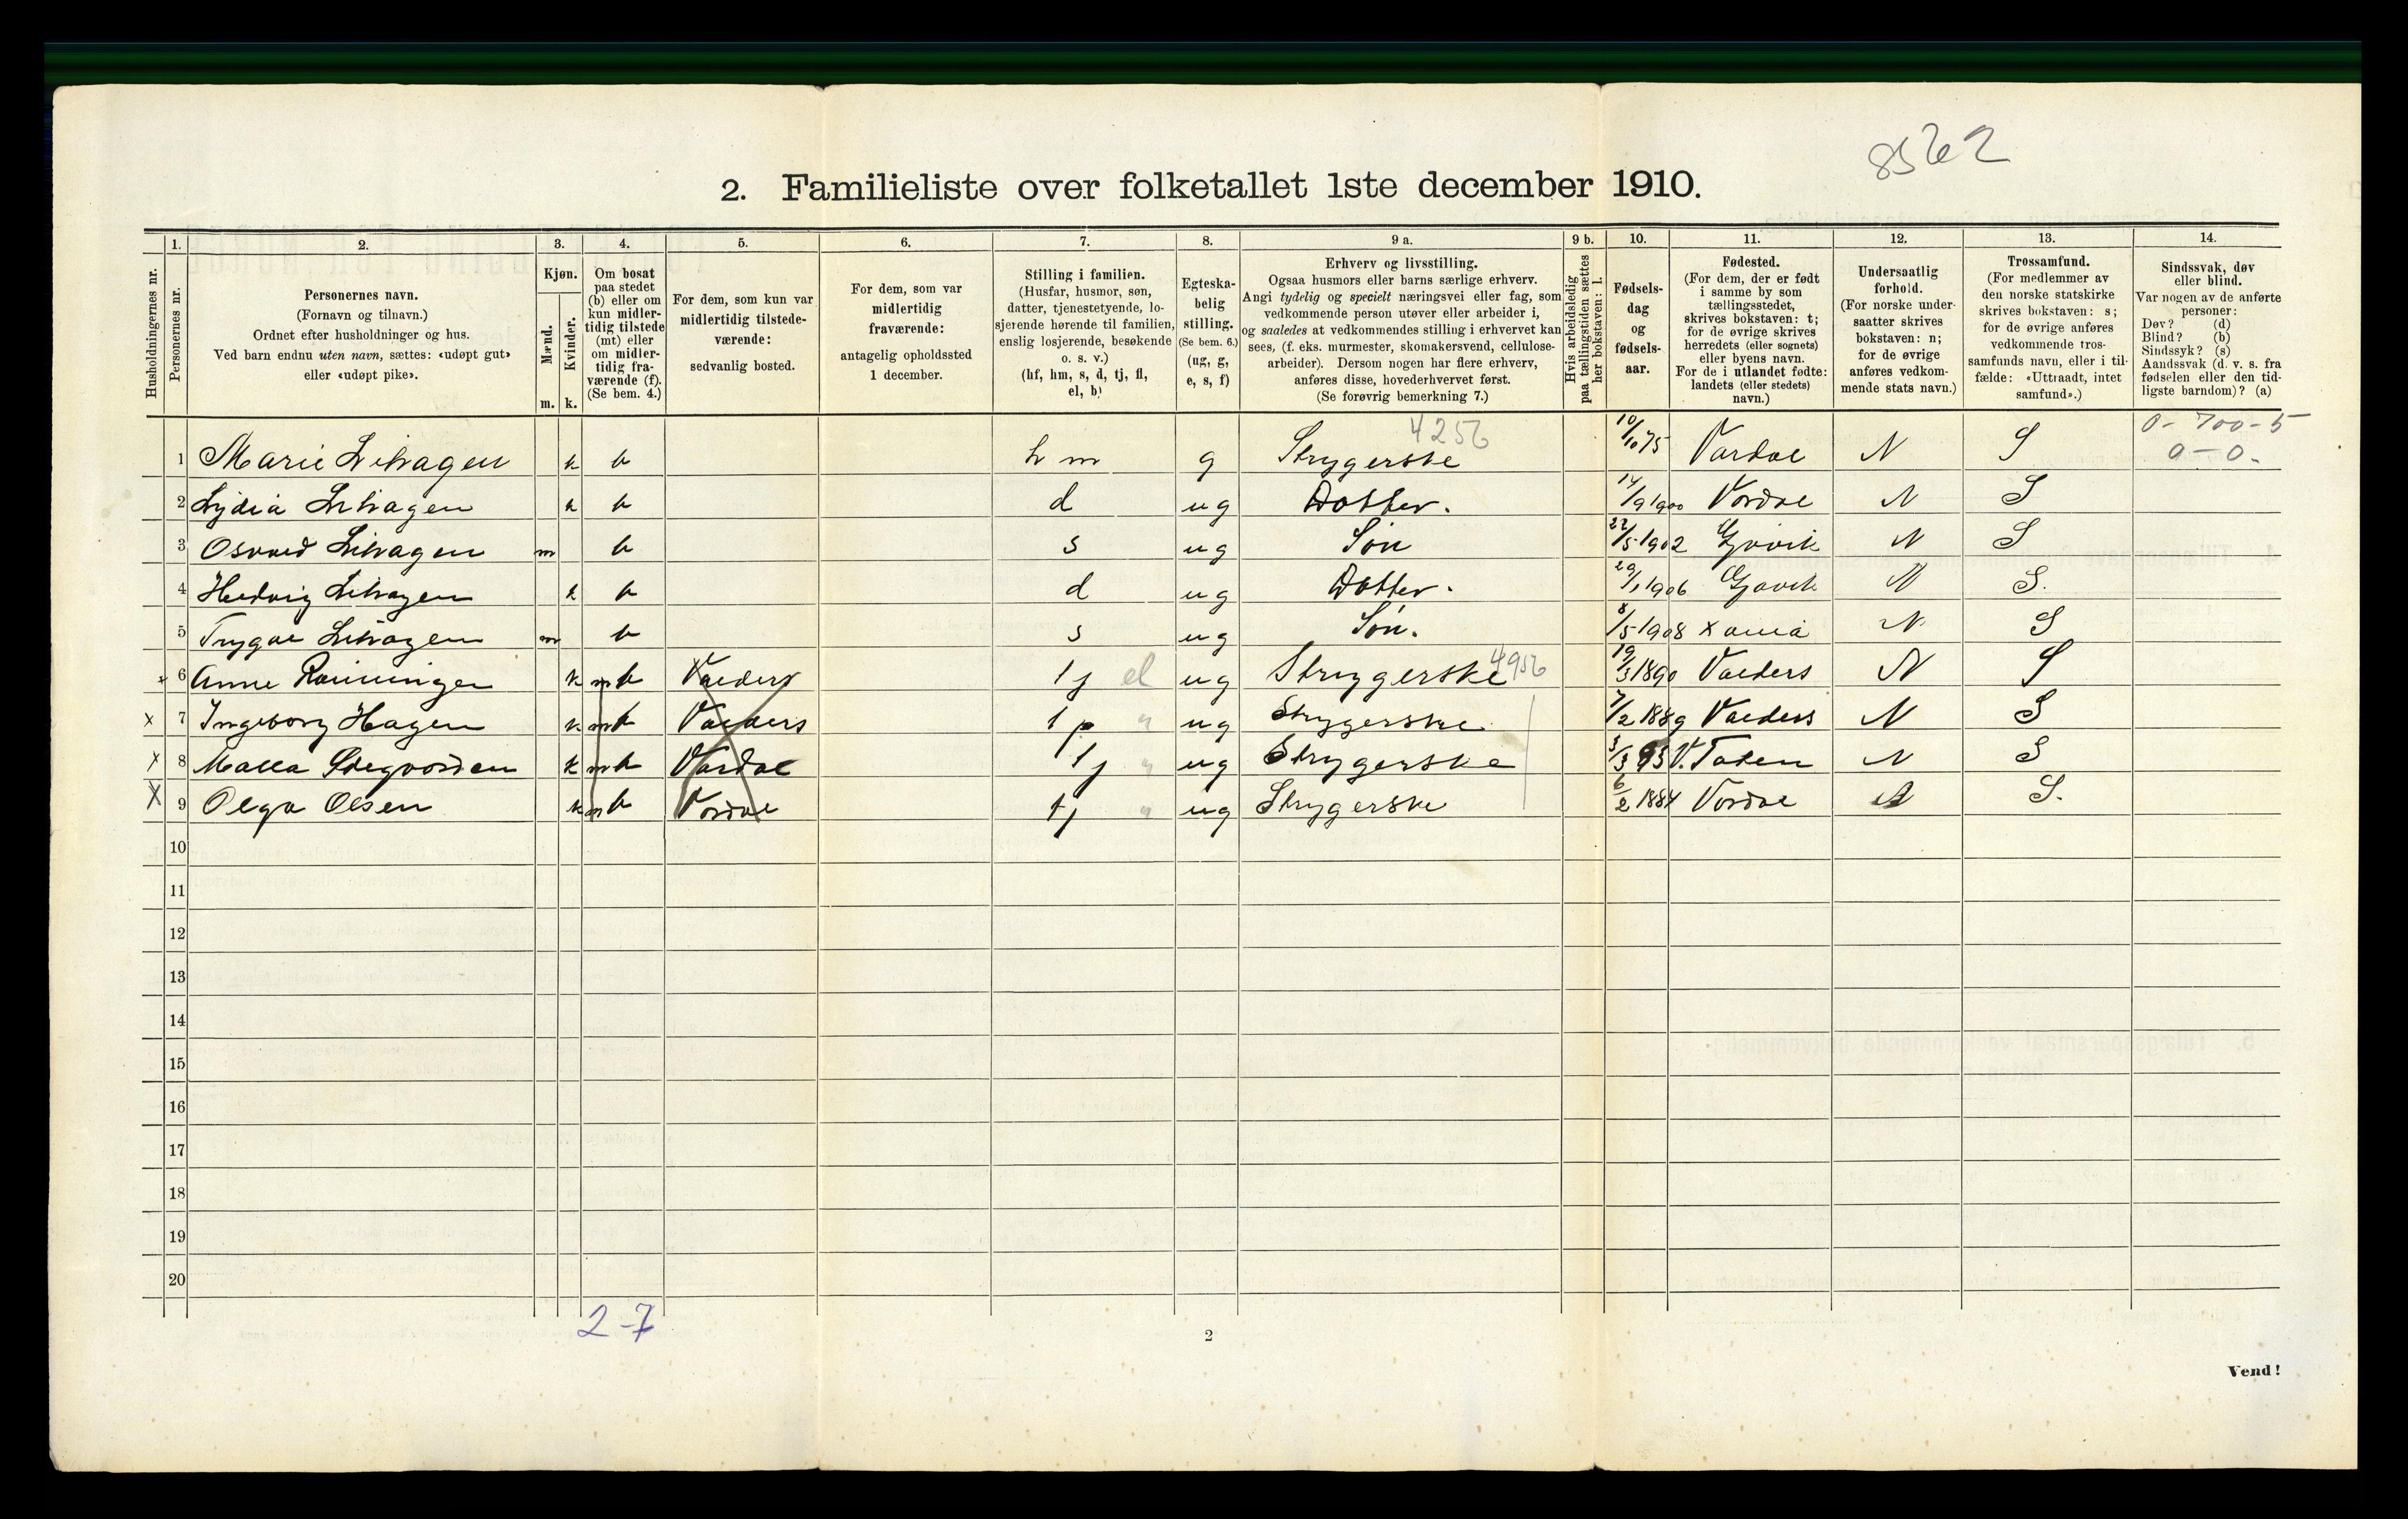 8562
2. Familieliste over folketallet 1ste december 1910.
1. 2. 3. 4. 5. 6. 7. 8. 9 a. 9 b. 10. 11. 12. 13. 14.
Husholdningernes nr.
Personernes nr.
Personernes navn.
(Fornavn og tilnavn.)
Ordnet efter husholdninger og hus.
Ved barn endnu uten navn, sættes: «udøpt gut»
eller «udøpt pike».
Kjøn.
Mænd.
Kvinder.
m. k.
Om bosat
paa stedet
(b) eller om
kun midler-
tidig tilstede
(mt) eller
om midler-
tidig fra-
værende (f).
(Se bem. 4.)
For dem, som kun var
midlertidig tilstede-
værende:
sedvanlig bosted.
For dem, som var
midlertidig
fraværende:
antagelig opholdssted
1 december.
Stilling i familien.
(Husfar, husmor, søn,
datter, tjenestetyende, lo-
sjerende hørende til familien,
enslig losjerende, besøkende
o. s. v.)
(hf, hm, s, d, tj, fl,
el, b)
Egteska-
belig
stilling.
(Se bem. 6.)
(ug, g,
e, s, f)
Erhverv og livsstilling.
Ogsaa husmors eller barns særlige erhverv.
Angi tydelig og specielt næringsvei eller fag, som
vedkommende person utøver eller arbeider i,
og saaledes at vedkommendes stilling i erhvervet kan
sees, (f. eks. murmester, skomakersvend, cellulose-
arbeider). Dersom nogen har flere erhverv,
anføres disse, hovederhvervet først.
(Se forøvrig bemerkning 7.)
Hvis arbeidsledig
paa tællingstiden sættes
her bokstaven: l.
Fødsels-
dag
og
fødsels-
aar.
Fødested.
(For dem, der er født
i samme by som
tællingsstedet,
skrives bokstaven: t;
for de øvrige skrives
herredets (eller sognets)
eller byens navn.
For de i utlandet fødte:
landets (eller stedets)
navn.)
Undersaatlig
forhold.
(For norske under-
saatter skrives
bokstaven: n;
for de øvrige
anføres vedkom-
mende stats navn.)
Trossamfund.
(For medlemmer av
den norske statskirke
skrives bokstaven: s;
for de øvrige anføres
vedkommende tros-
samfunds navn, eller i til-
fælde: «Uttraadt, intet
samfund».)
Sindssvak, døv
eller blind.
Var nogen av de anførte
personer:
Døv? (d)
Blind? (b)
Sindssyk? (s)
Aandssvak (d. v. s. fra
fødselen eller den tid-
ligste barndom)? (a)
4256 0-700-5
1 Marie Lihagen k b hm g Strygerske 10/10 75 Vardal N S 0-0.
2 Lydia Lihagen k b d ug Datter. 14/9 1900 Vardal N S
3 Lihagen m b s ug Søn 22/5 1902 Gjøvik N S
4 Hedvig Lihagen k b d ug Datter. 29/1 1906 Gjøvik N S.
5 Trygve Lihagen m b s ug Søn. 8/5 1908 N S
6 Anne Rønningen k mt b Valders tj el ug Strygerske 4956 19/3 1890 Valders N S
x 7 Ingeborg Hagen k mt b Valders " ug Strygerske 7/2 1889 Valders N S
x 8 k mt b Vardal tj " ug Strygerske 3/3 93 V. Toten N S
x 9 Olga Olsen k mt b Vardal tj " ug Strygerske 6/2 1884 Vardal N S.
10
11
12
13
14
15
16
17
18
19
20
2-7
2
Vend!